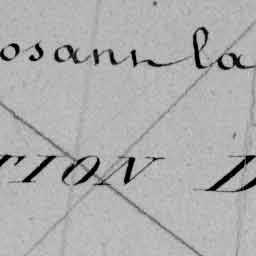 osann la
TION D